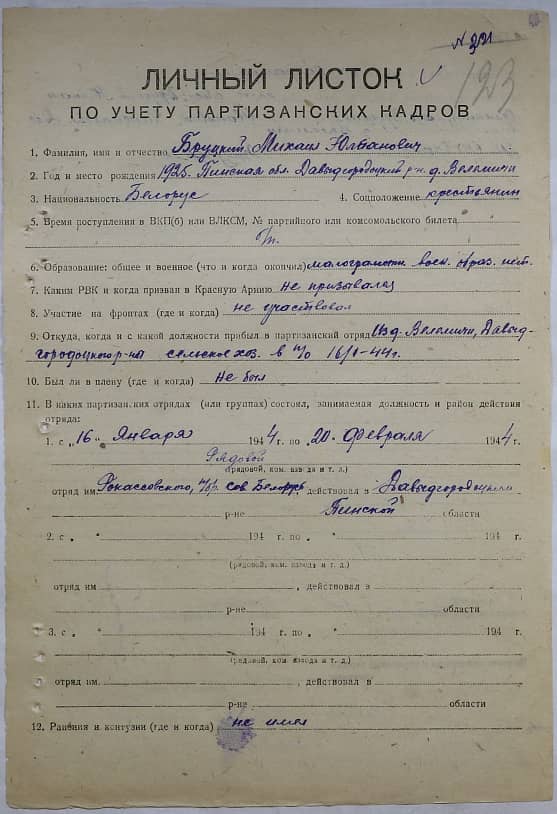 № 221
123
ЛИЧНЫЙ ЛИСТОК
ПО УЧЕТУ ПАРТИЗАНСКИХ КАДРОВ
1. Фамилия, имя и отчество Бруцкий Михаил Юльянович
2. Год и место рождения 1925. Пинская обл. Давыдгородоцкий р-н. д. Велемичи
3. Национальность Белорус 4. Соцположение крестьянин
5. Время поступления в ВКП(б) или ВЛКСМ, № партийного или комсомольского билета
б/п.
6. Образование: общее и военное (что и когда окончил) малограмотн. воен. образ. нет.
7. Каким РВК и когда призван в Красную Армию не призывался
8. Участие на фронтах (где и когда) не участвовал
9. Откуда, когда и с какой должности прибыл в партизанский отряд Из д. Велемичи, Давыд-
городоцкого р-на сельское хоз. в п/о 16/I-44г.
10. Был ли в плену (где и когда) Не был
11. В каких партизанских отрядах (или группах) состоял, занимаемая должность и район действия
отряда:
1. с „16“ Января 1944 г. по „20“ февраля 1944 г.
Рядовой
(рядовой, ком. взвода и т. д.)
отряд им. Рокоссовского, бр. Сов. Беларусь действовал в Давыдгородоцком
р-не Пинской области
2. с „ “ 194 г. по „ “ 194 г.
(рядовой, ком. взвода и т. д.)
отряд им , действовал в
р-не области
3. с „ “ 194 г. по „ “ 194 г.
(рядовой, ком. взвода и т. д.)
отряд им. , действовал в
р-не области
12. Ранения и контузии (где и когда) не имел